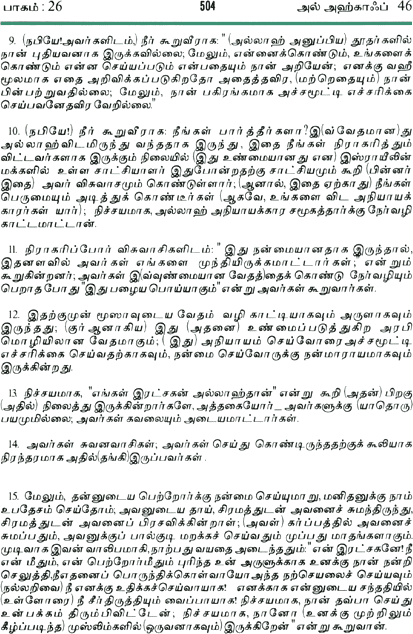 பாகம் : 26 504 அல் அஹ்காஃப் 46
9. (நபியே!அவர்களிடம்,) நீர் கூறுவீராக: " (அல்லாஹ் அனுப்பிய) தூதர்களில்
நான் புதியவனாக இருக்கவில்லை; மேலும், என்னைக்கொண்டும், உங்களைக்
கொண்டும் என்ன செய்யப்படும் என்பதையும் நான் அறியேன்; எனக்கு வஹீ
மூலமாக எதை அறிவிக்கப்படுகிறதோ அதைத்தவிர, (மற்றெதையும்) நான்
பின்பற்றுவதில்லை; மேலும், நான் பகிரங்கமாக அச்சமூட்டி எச்சரிக்கை
செய்பவனேதவிர வேறில்லை."
10. (நபியே!) நீர் கூறுவீராக: நீங்கள் பார்த்தீர்களா?இ(வ்வேதமான)து
அல்லாஹ்விடமிருந்து வந்ததாக இருந்து, இதை நீங்கள் நிராகரித்தும்
விட்டவர்களாக இருக்கும் நிலையில் (இது உண்மையானது என) இஸ்ராயீலின்
மக்களில் உள்ள சாட்சியாளர் இதுபோன்றதற்கு சாட்சியமும் கூறி (பின்னர்
இதை) அவர் விசுவாசமும் கொண்டுள்ளார்; (ஆனால், இதை ஏற்காது) நீங்கள்
பெருமையும் அடித்துக் கொண்டீர்கள் (ஆகவே, உங்களை விட அநியாயக்
காரர்கள் யார்); நிச்சயமாக, அல்லாஹ் அநியாயக்கார சமூகத்தார்க்கு நேர்வழி
காட்டமாட்டான்.
11. நிராகரிப்போர் விசுவாசிகளிடம்: " இது நன்மையானதாக இருந்தால்,
இதனளவில் அவர்கள் எங்களை முந்தியிருக்கமாட்டார்கள்; என்றும்
கூறுகின்றனர்; அவர்கள் இ(வ்வுண்மையான வேதத்)தைக் கொண்டு நேர்வழியும்
பெறாதபோது "இது பழைய பொய்யாகும்" என்று அவர்கள் கூறுவார்கள்.
12. இதற்குமுன் மூஸாவுடைய வேதம் வழி காட்டியாகவும் அருளாகவும்
இருந்தது; (குர்ஆனாகிய) இது (அதனை) உண்மைப்படுத்துகிற அரபி
மொழியிலான வேதமாகும்; ( இது) அநியாயம் செய்வோரை அச்சமூட்டி
எச்சரிக்கை செய்வதற்காகவும், நன்மை செய்வோருக்கு நன்மாராயமாகவும்
இருக்கின்றது.
13 நிச்சயமாக, "எங்கள் இரட்சகன் அல்லாஹ்தான்" என்று கூறி (அதன்) பிறகு
(அதில்) நிலைத்து இருக்கின்றார்களே, அத்தகையோர்_ அவர்களுக்கு (யாதொரு)
பயமுமில்லை; அவர்கள் கவலையும் அடையமாட்டார்கள்.
14. அவர்கள் சுவனவாசிகள்; அவர்கள் செய்து கொண்டிருந்ததற்குக் கூலியாக
நிரந்தரமாக அதில்(தங்கி)இருப்பவர்கள் .
15. மேலும், தன்னுடைய பெற்றோர்க்கு நன்மை செய்யுமாறு, மனிதனுக்கு நாம்
உபதேசம் செய்தோம்; அவனுடைய தாய், சிரமத்துடன் அவனைச் சுமந்திருந்து,
சிரமத்துடன் அவனைப் பிரசவிக்கின்றாள்; (அவள்) கர்ப்பத்தில் அவனைச்
சுமப்பதும், அவனுக்குப் பால்குடி மறக்கச் செய்வதும் முப்பது மாதங்களாகும்.
முடிவாக இவன் வாலிபமாகி, நாற்பது வயதை அடைந்ததும்: " என் இரட்சகனே! நீ
என் மீதும், என் பெற்றோர்மீதும் புரிந்த உன் அருளுக்காக உனக்கு நான் நன்றி
செலுத்தி, நீ எதனைப் பொருந்திக்கொள்வாயோ அந்த நற்செயலைச் செய்யவும்
(நல்லறிவை) நீ எனக்கு உதிக்கச்செய்வாயாக! எனக்காக என்னுடைய சந்ததியில்
(உள்ளோரை) நீ சீர்திருத்தியும் வைப்பாயாக! நிச்சயமாக, நான் தவ்பா செய்து
உன்பக்கம் திரும்பிவிட்டேன்; நிச்சயமாக, நானோ (உனக்கு முற்றிலும்
கீழ்ப்படிந்த) முஸ்லிம்களில் (ஒருவனாகவும்) இருக்கிறேன்" என்று கூறுவான்.